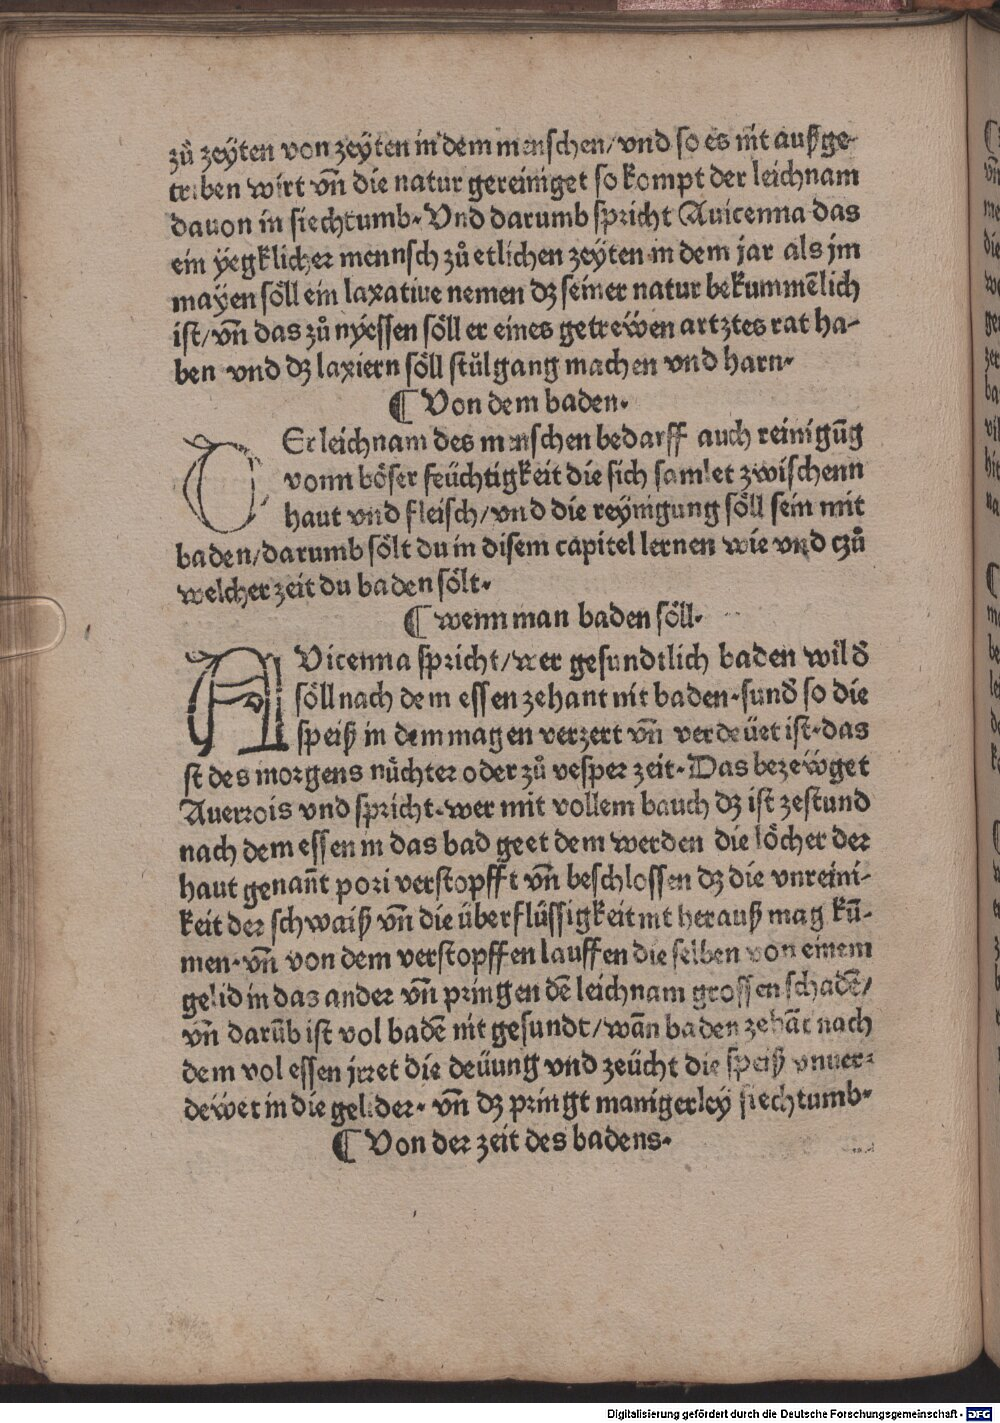 zů zeÿten von zeÿten in dem menschen/vnd so es nit außge-
triben wirt vn̄ die natur gereiniget so kompt der leichnam
dauon in siechtumb. Vnd darumb spricht Auicenna das
ein ÿegklicher mennsch zů etlichen zeÿten in dem jar als jm
mayen söll ein laxatiue nemen dz seiner natur bekummēlich
ist/vn̄ das zů nÿessen söll er eines getreẅen artztes rat ha-
ben vnd dz laxiern söll stůlgang machen vnd harn.
¶ Von dem baden.
DEr leichnam des menschen bedarff auch reinigūg
vonn böser feüchtigkeit die sich samlet zwischenn
haut vnd fleisch/vnd die reÿnigung söll sein mit
baden/darumb sölt du in disem capitel lernen wie vnd czů
welcher zeit du baden sölt.
¶ wenn man baden söll.
AVicenna spricht/wer gesundtlich baden wil d̄
söll nach dem essen zehant nit baden.sund̄ so die
speiß in dem magen verzert vn̄ verdeüet ist.das
st des morgens nůchter oder zů vesper zeit. Das bezeẅget
Auerrois vnd spricht.wer mit vollem bauch dz ist zestund
nach dem essen in das bad geet dem werden die löcher der
haut genan̄t pori verstopfft vn̄ beschlossen dz die vnreini-
keit der schwaiß vn̄ die überflüssigkeit nit herauß mag kū-
men.vn̄ von dem verstopffen lauffen die selben von einem
gelid in das ander vn̄ pringen dē leichnam grossen schadē/
vn̄ darūb ist vol badē nit gesundt/wān baden zehāt nach
dem vol essen jrret die deüung vnd zeücht die speiß vnuer-
deẅet in die gelider. vn̄ dz pringt manigerleÿ siechtumb.
¶ Von der zeit des badens.
Digitalisierung gefördert durch die Deutsche Forschungsgemeinschaft - DFG